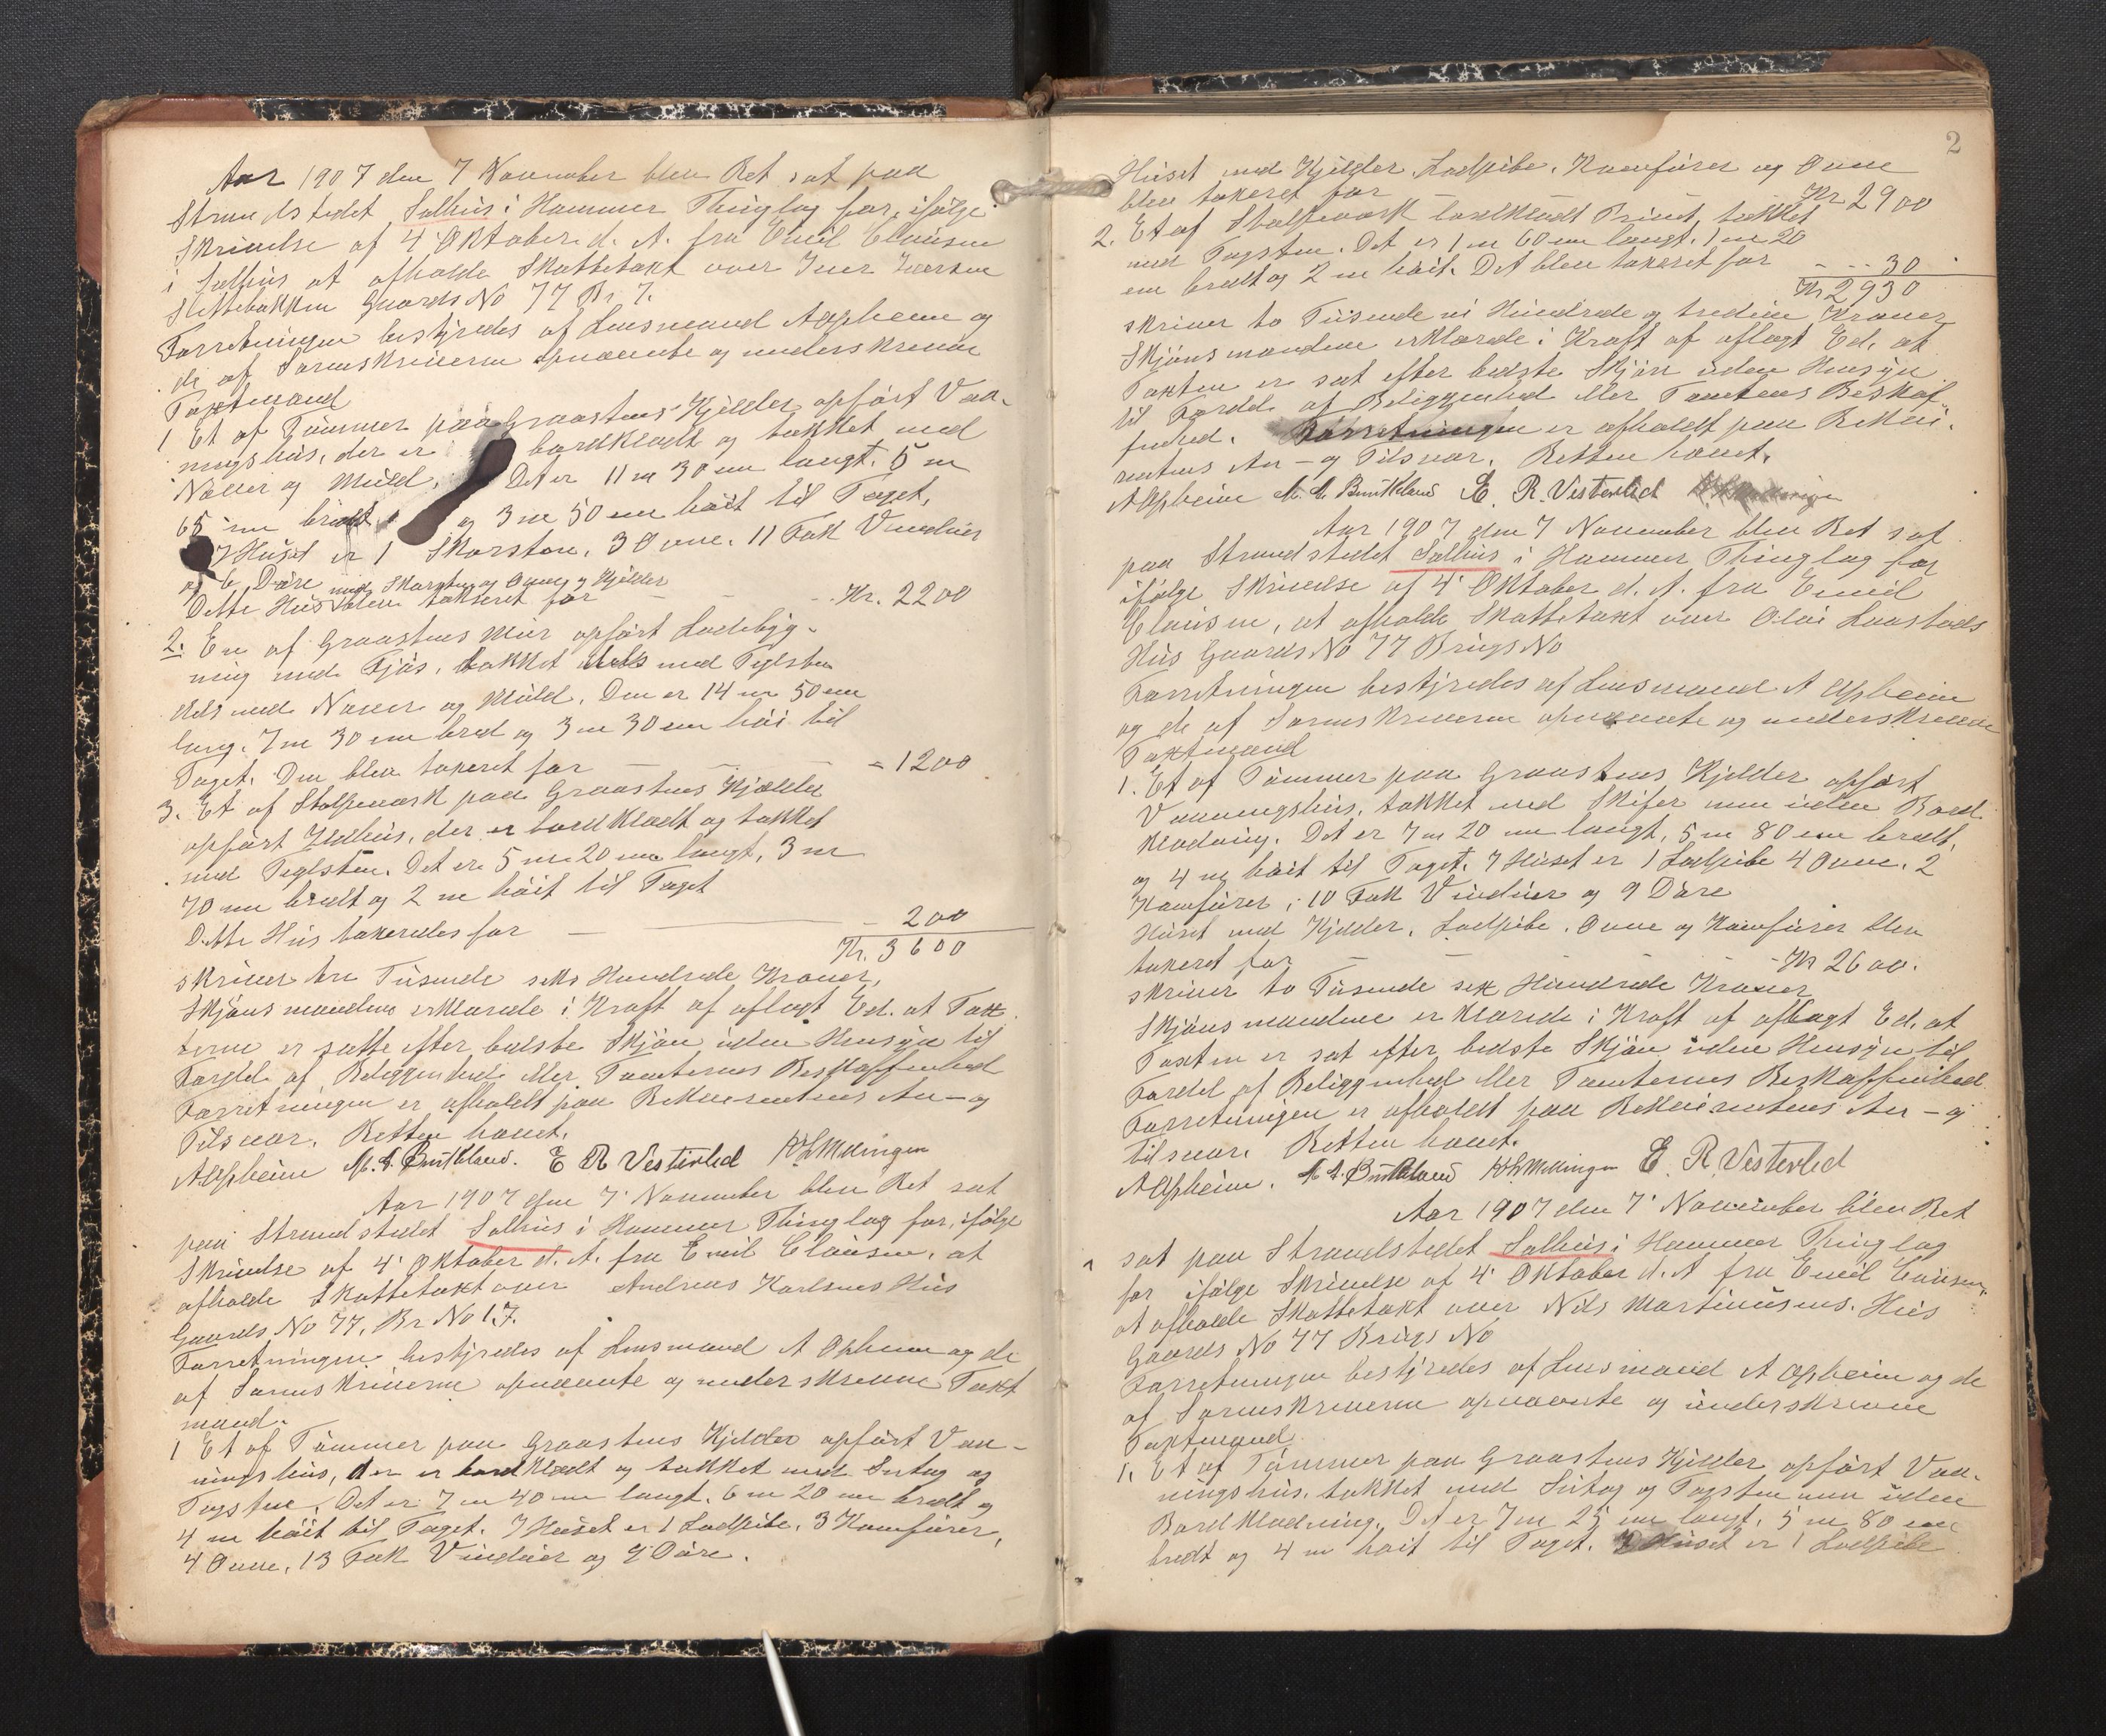 Aar 1907 den 7 November blev Ret sat paa
Strandstedet Salhus i Hammer Thinglag for, ifølge
Skrivelse af 4' Oktober d. A. fra Emil Clausen
i Salhus at afholde Skattetakt over Iver Iversen
Slettebakken Gaards No 77 Br 7.
Forretningen bestyredes af Lensmand A Opheim og
de af Sorenskriveren opnævnte og underskrevne
Taxtmænd
1 Et af Tømmer paa Graastens Kjelder opført Vaa-
ningshus, der er bordklædt og tækket med
Næver og Muld. Det er 11 m 30 cm langt, 5 m
65 cm bredt og 3 m 50 cm høit til Taget,
I Huset er 1 Skorsten, 3 Ovne, 11 Fak Vinduer
og 6 Døre
Dette Hus med Skorsten og Ovne og Kjelder blev takseret for - - - Kr. 2200
2. En af Graastens Mur opført Ladebyg-
ning med Fjøs, tækket dels med Teglsten
dels med Næver og Muld. Den er 14 m 50 cm
lang, 7 m 30 cm bred og 3 m 30 cm høi til
Taget. Den blev takeret for - - - - 1200
3. Et af Stolpeværk paa Graastens Kjælder
opført Ildhus, der er bordklædt og tækket
med Teglsten. Det er 5 m 20 cm langt, 3 m
70 cm bredt og 2 m høit til Taget
Dette Hus takeredes for - - - 200
Kr. 3600
skriver tre Tusende seks Hundrede Kroner,
Skjønsmændene erklærede i Kraft af aflagt Ed. at Tax
terne er satte efter bedste Skjøn uden Hensyn til
Fordel af Beliggenhed eller Tomternes Beskaffenhed
Forretningen er afholdt paa Rekvirentens An- og
Tilsvar. Retten hævet.
A Opheim M. A. Brurtkland. E R Vesterlid K L Mellingen
Aar 1907 den 7' November blev Ret sat
paa Strandstedet Salhus i Hammer Thinglag for, ifølge
Skrivelse af 4' Oktober d. A. fra Emil Clausen, at
afholde Skattetakt over Andreas Karlsens Hus
Gaards No 77, Br No 17.
Forretningen bestyredes af Lensmand A Opheim og de
af Sorenskriveren opnævnte og underskrevne Taxt
mænd.
1 Et af Tømmer paa Graastens Kjelder opført Vaa-
ningshus, der er bordklædt og tækket med Sutag og
Tagsten. Det er 7 m 40 cm langt, 6 m 20 cm bredt og
4 m høit til Taget. I Huset er 1 Ladpibe, 3 Komfurer,
4 Ovne, 13 Fak Vinduer og 9 Døre.
2
Huset med Kjelder, Ladpibe, Komfurer og Ovne
blev takeret for Kr 2900
2. Et af Stolpeværk bordklædt Privet, tækket
med Tagsten. Det er 1 m 60 cm langt, 1 m 20
cm bredt og 2 m høit. Det blev takeret for - - - 30
Kr 2930
skriver to Tusende ni Hundrede og tredive Kroner
Skjønsmændene erklærede i Kraft af aflagt Ed, at
Taxten er sat efter bedste Skjøn uden Hensyn
til Fordel af Beliggenhed eller Tomtens Beskaf-
fenhed. Forretningen er afholdt paa Rekvi-
rentens An- og Tilsvar. Retten hævet.
A Opheim E. R. Vesterlid
Aar 1907 den 7 November blev Ret sat
paa Strandstedet Salhus i Hammer Thinglag for
ifølge Skrivelse af 4' Oktober d. A. fra Emil
Clausen, at afholde Skattetakt over Olai Laastads
Hus Gaards No 77 Brugs No
Forretningen bestyredes af Lensmand A Opheim
og de af Sorenskriveren opnævnte og underskrevne
Taxtmænd
1. Et af Tømmer paa Graastens Kjelder opført
Vaaningshus, tækket med Skifer men uden Bord-
klædning. Det er 7 m 20 cm langt, 5 m 80 cm bredt,
og 4 m høit til Taget. I Huset er 1 Ladpibe 4 Ovne, 2
Komfurer, 10 Fak Vinduer og 9 Døre
Huset med Kjelder, Ladpibe, Ovne og Komfurer blev
takeret for - - - Kr 2600.
skriver to Tusende sex Hundrede Kroner
Skjønsmændene erklærede i Kraft af aflagt Ed, at
Taxten er sat efter bedste Skjøn uden Hensyn til
Fordel af Beliggenhed eller Tomternes Beskaffenhed.
Forretningen er afholdt paa Rekvirentens An- og
tilsvar. Retten hævet.
A Opheim. K L Mellingen E. R. Vesterlid
Aar 1907 den 7' November blev Ret
sat paa Strandstedet Salhus i Hammer Thinglag
for ifølge Skrivelse af 4' Oktober d. A fra Emil Clausen,
at afholde Skattetakt over Nils Martinusens Hus
Gaards No 77 Brugs No
Forretningen bestyredes af Lensmand A Opheim og de
af Sorenskriveren opnævnte og underskrevne
Taxtmænd.
1. Et af Tømmer paa Graastens Kjelder opført Vaa-
ningshus, tækket med Sutag og Tagsten men uden
Bordklædning. Det er 7 m 25 cm langt, 5 m 80 cm
bredt og 4 m høit til Taget. I Huset er 1 Ladpibe